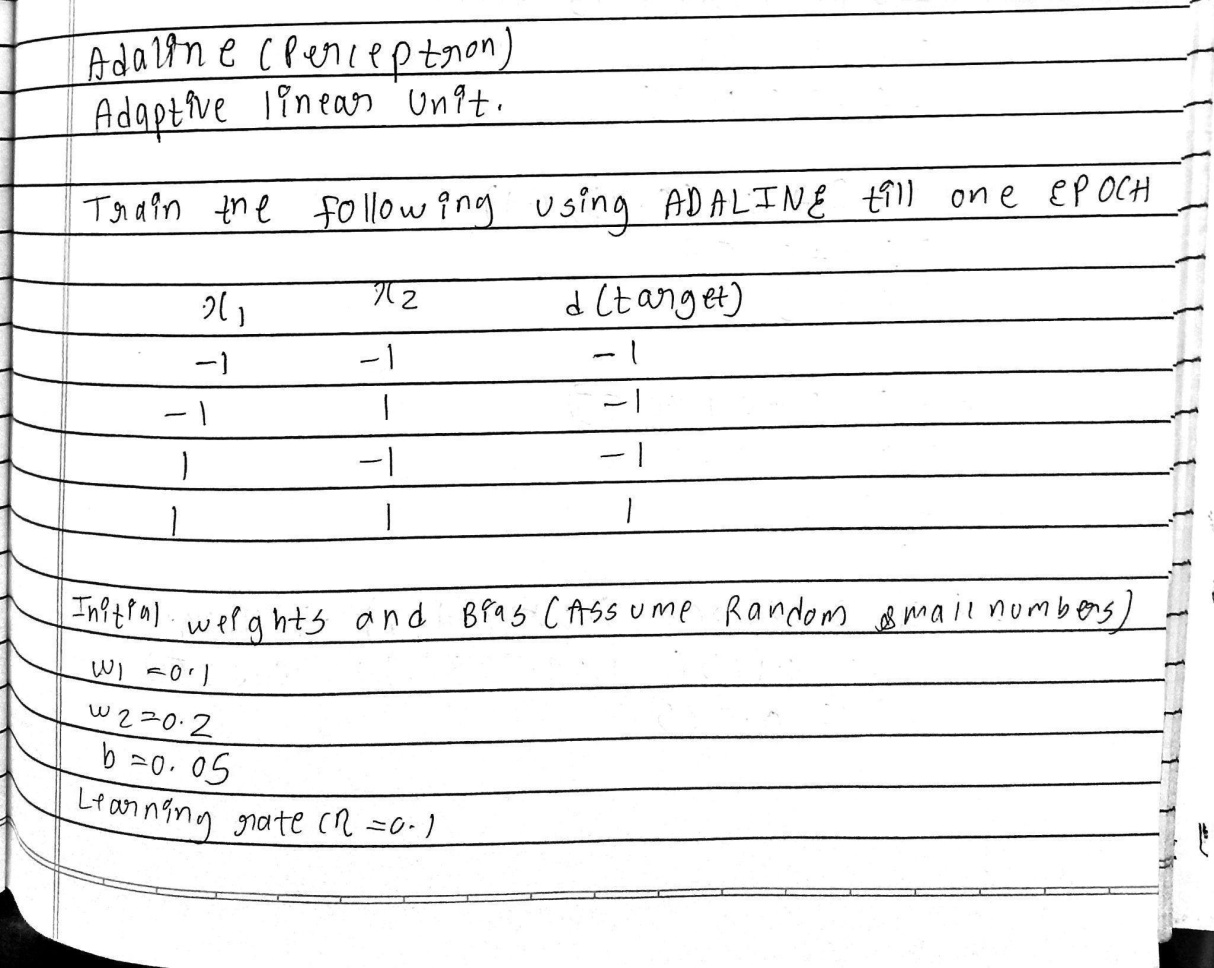 Adaline (Perceptron)
Adaptive linear Unit.
Train the following using ADALINE till one EPOCH
x1 x2 d (target)
-1 -1 -1
-1 1 -1
1 -1 -1
1 1 1
Initial weights and Bias (Assume Random small numbers)
w1 = 0.1
w2 = 0.2
b = 0.05
Learning rate (η = 0.1